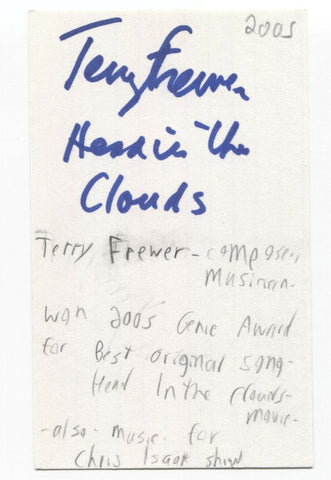 2005
Terry Frewer
Head in the
Clouds
Terry Frewer - composer,
Musician -
won 2005 Genie Award
for Best original song -
Head In the Clouds -
movie -
- also - music for
Chris Isaak show